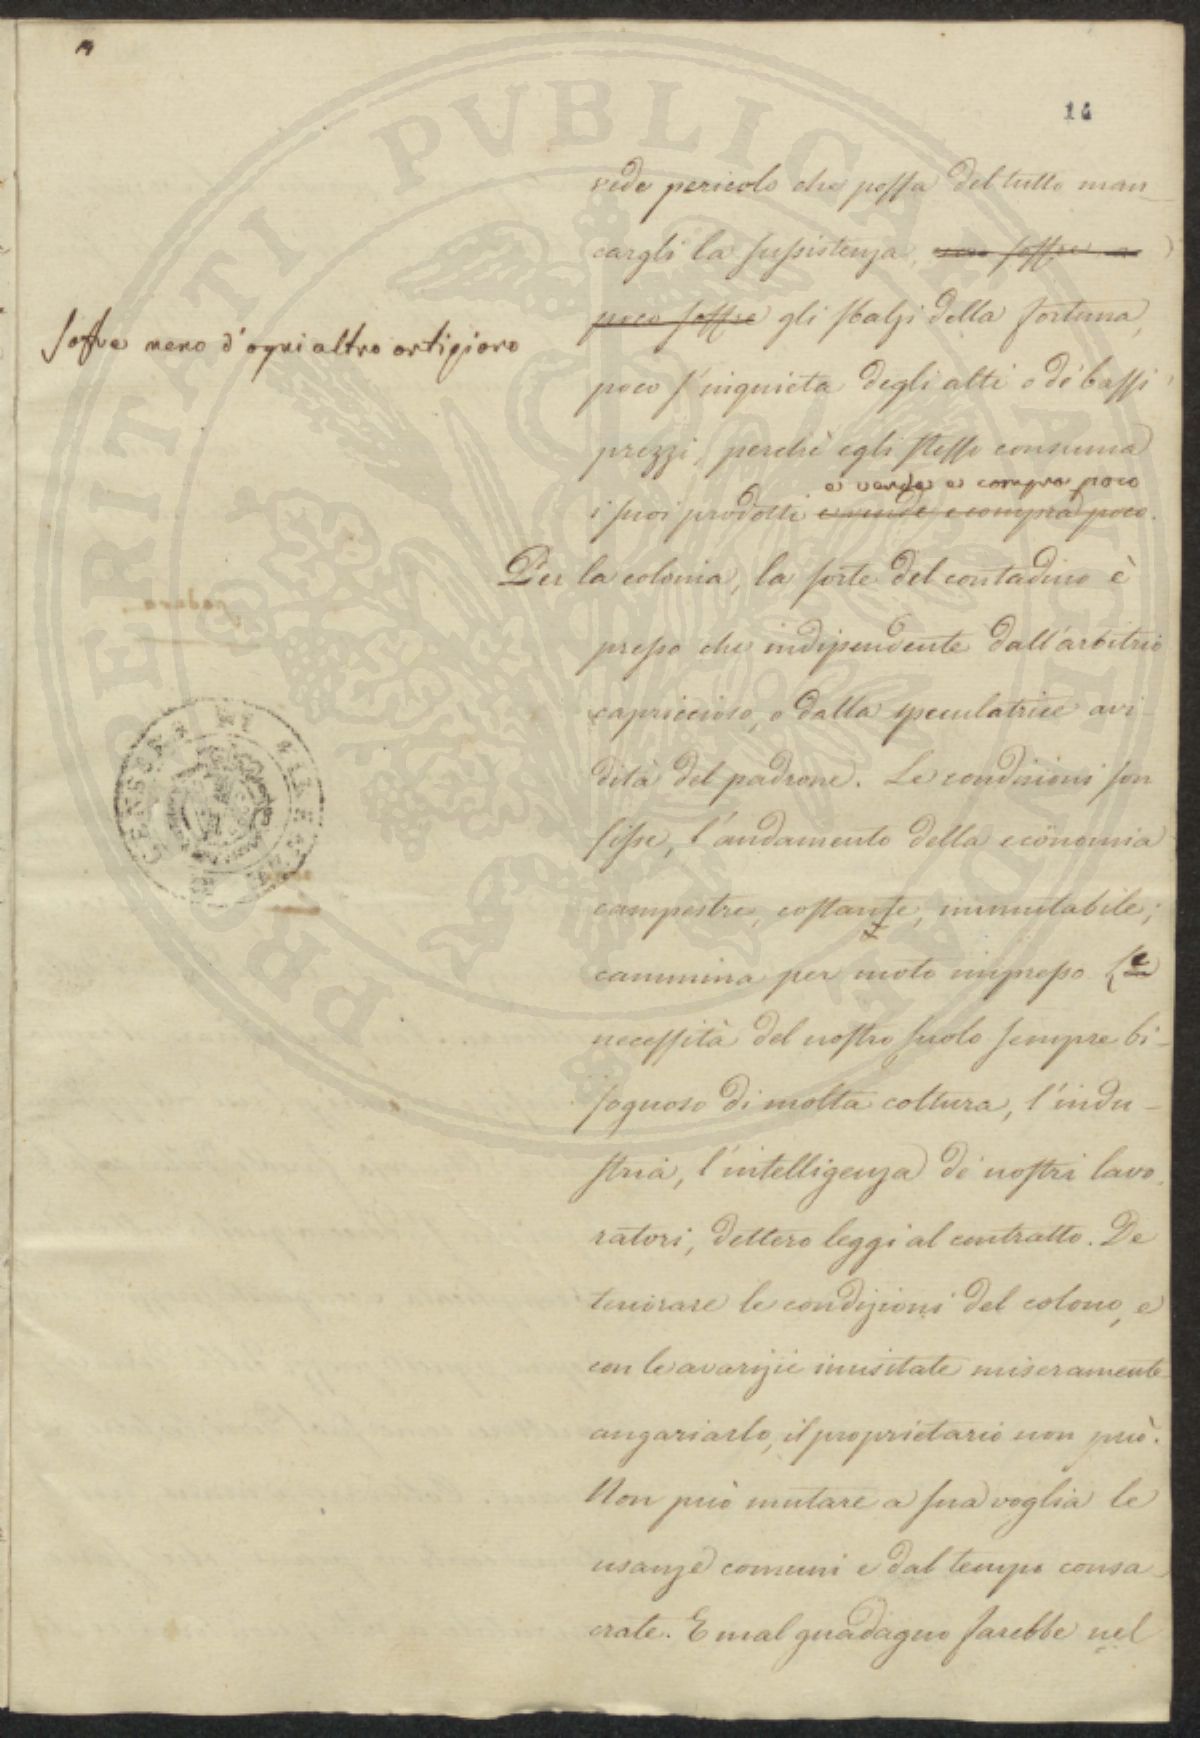 14
vede pericolo che possa del tutto man-
cargli la sussistenza, soffre
poco soffre gli sbalzi della fortuna,
soffre meno d'ogni altro artigiano
poco s'inquieta degli alti o de' bassi
prezzi, perchè egli stesso consuma
e vende e compra poco
i suoi prodotti e vende e compra poco.
Per la colonia, la sorte del contadino è
presso che indipendente dall'arbitrio
capriccioso, o dalla speculatrice avi
dità del padrone. Le condizioni son
fisse, l'andamento della ecönomia
campestre, costante, immutabile;
cammina per moto impresso. Le
necessità del nostro suolo sempre bi-
sognoso di molta coltura, l'indu-
stria, l'intelligenza de' nostri lavo.
ratori, dettero leggi al contratto. De
teriorare le condizioni del colono, e
con le avarizie inusitate miseramente
angariarlo, il proprietario non può.
Non può mutare a sua voglia le
usanze comuni e dal tempo consa-
crate. E mal guadagno sarebbe nel
PROSPERITATI PVBLICAE AVGENDAE